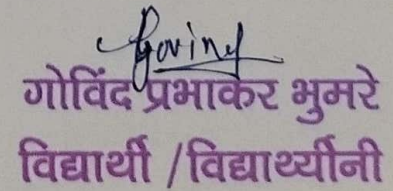 Govind
गोविंद प्रभाकर भुमरे
विद्यार्थी /विद्यार्थ्यीनी